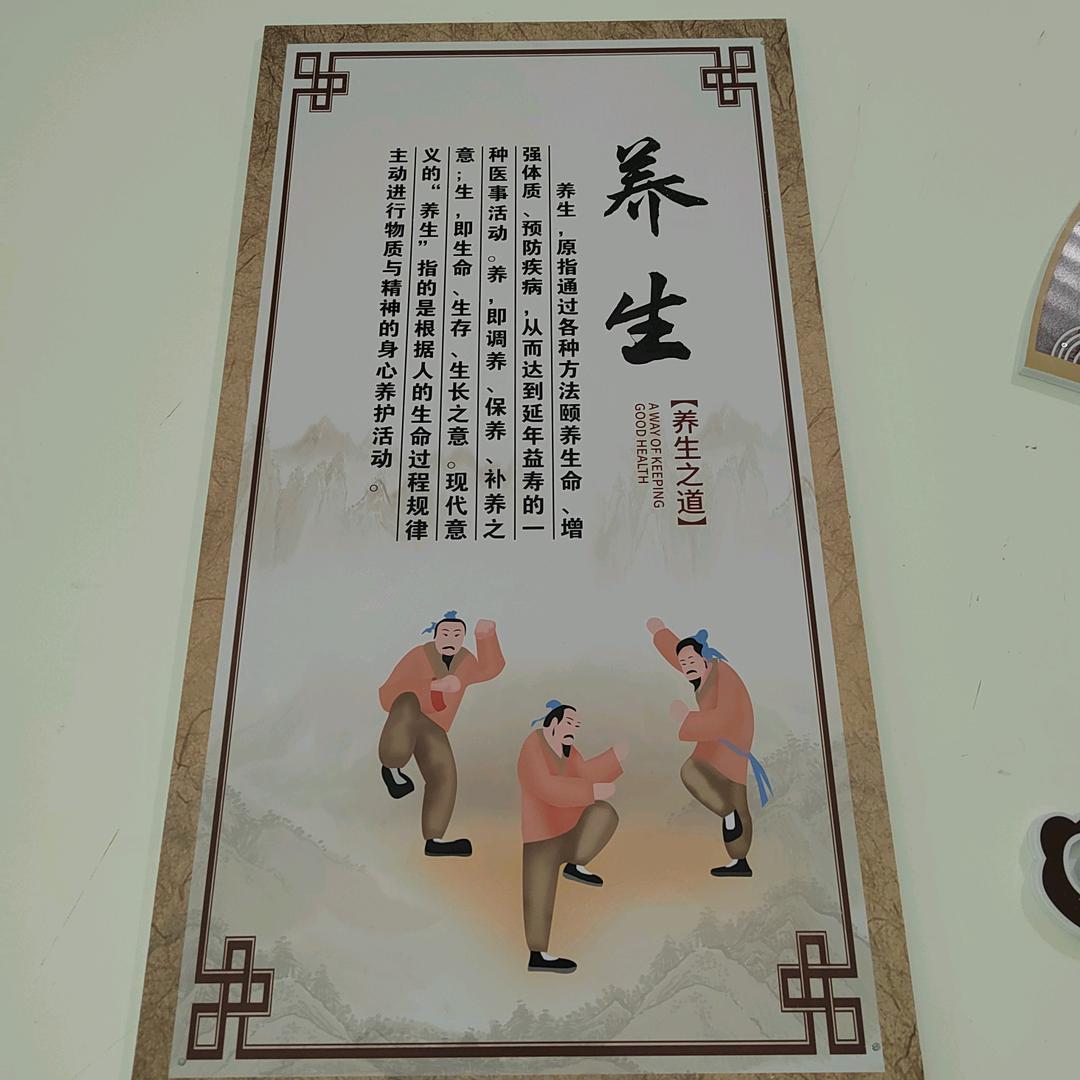 养生
【养生之道】
A WAY OF KEEPING
GOOD HEALTH
养生,原指通过各种方法颐养生命、增
强体质、预防疾病,从而达到延年益寿的一
种医事活动。养,即调养、保养、补养之
意;生,即生命、生存、生长之意。现代意
义的“养生”指的是根据人的生命过程规律
主动进行物质与精神的身心养护活动。